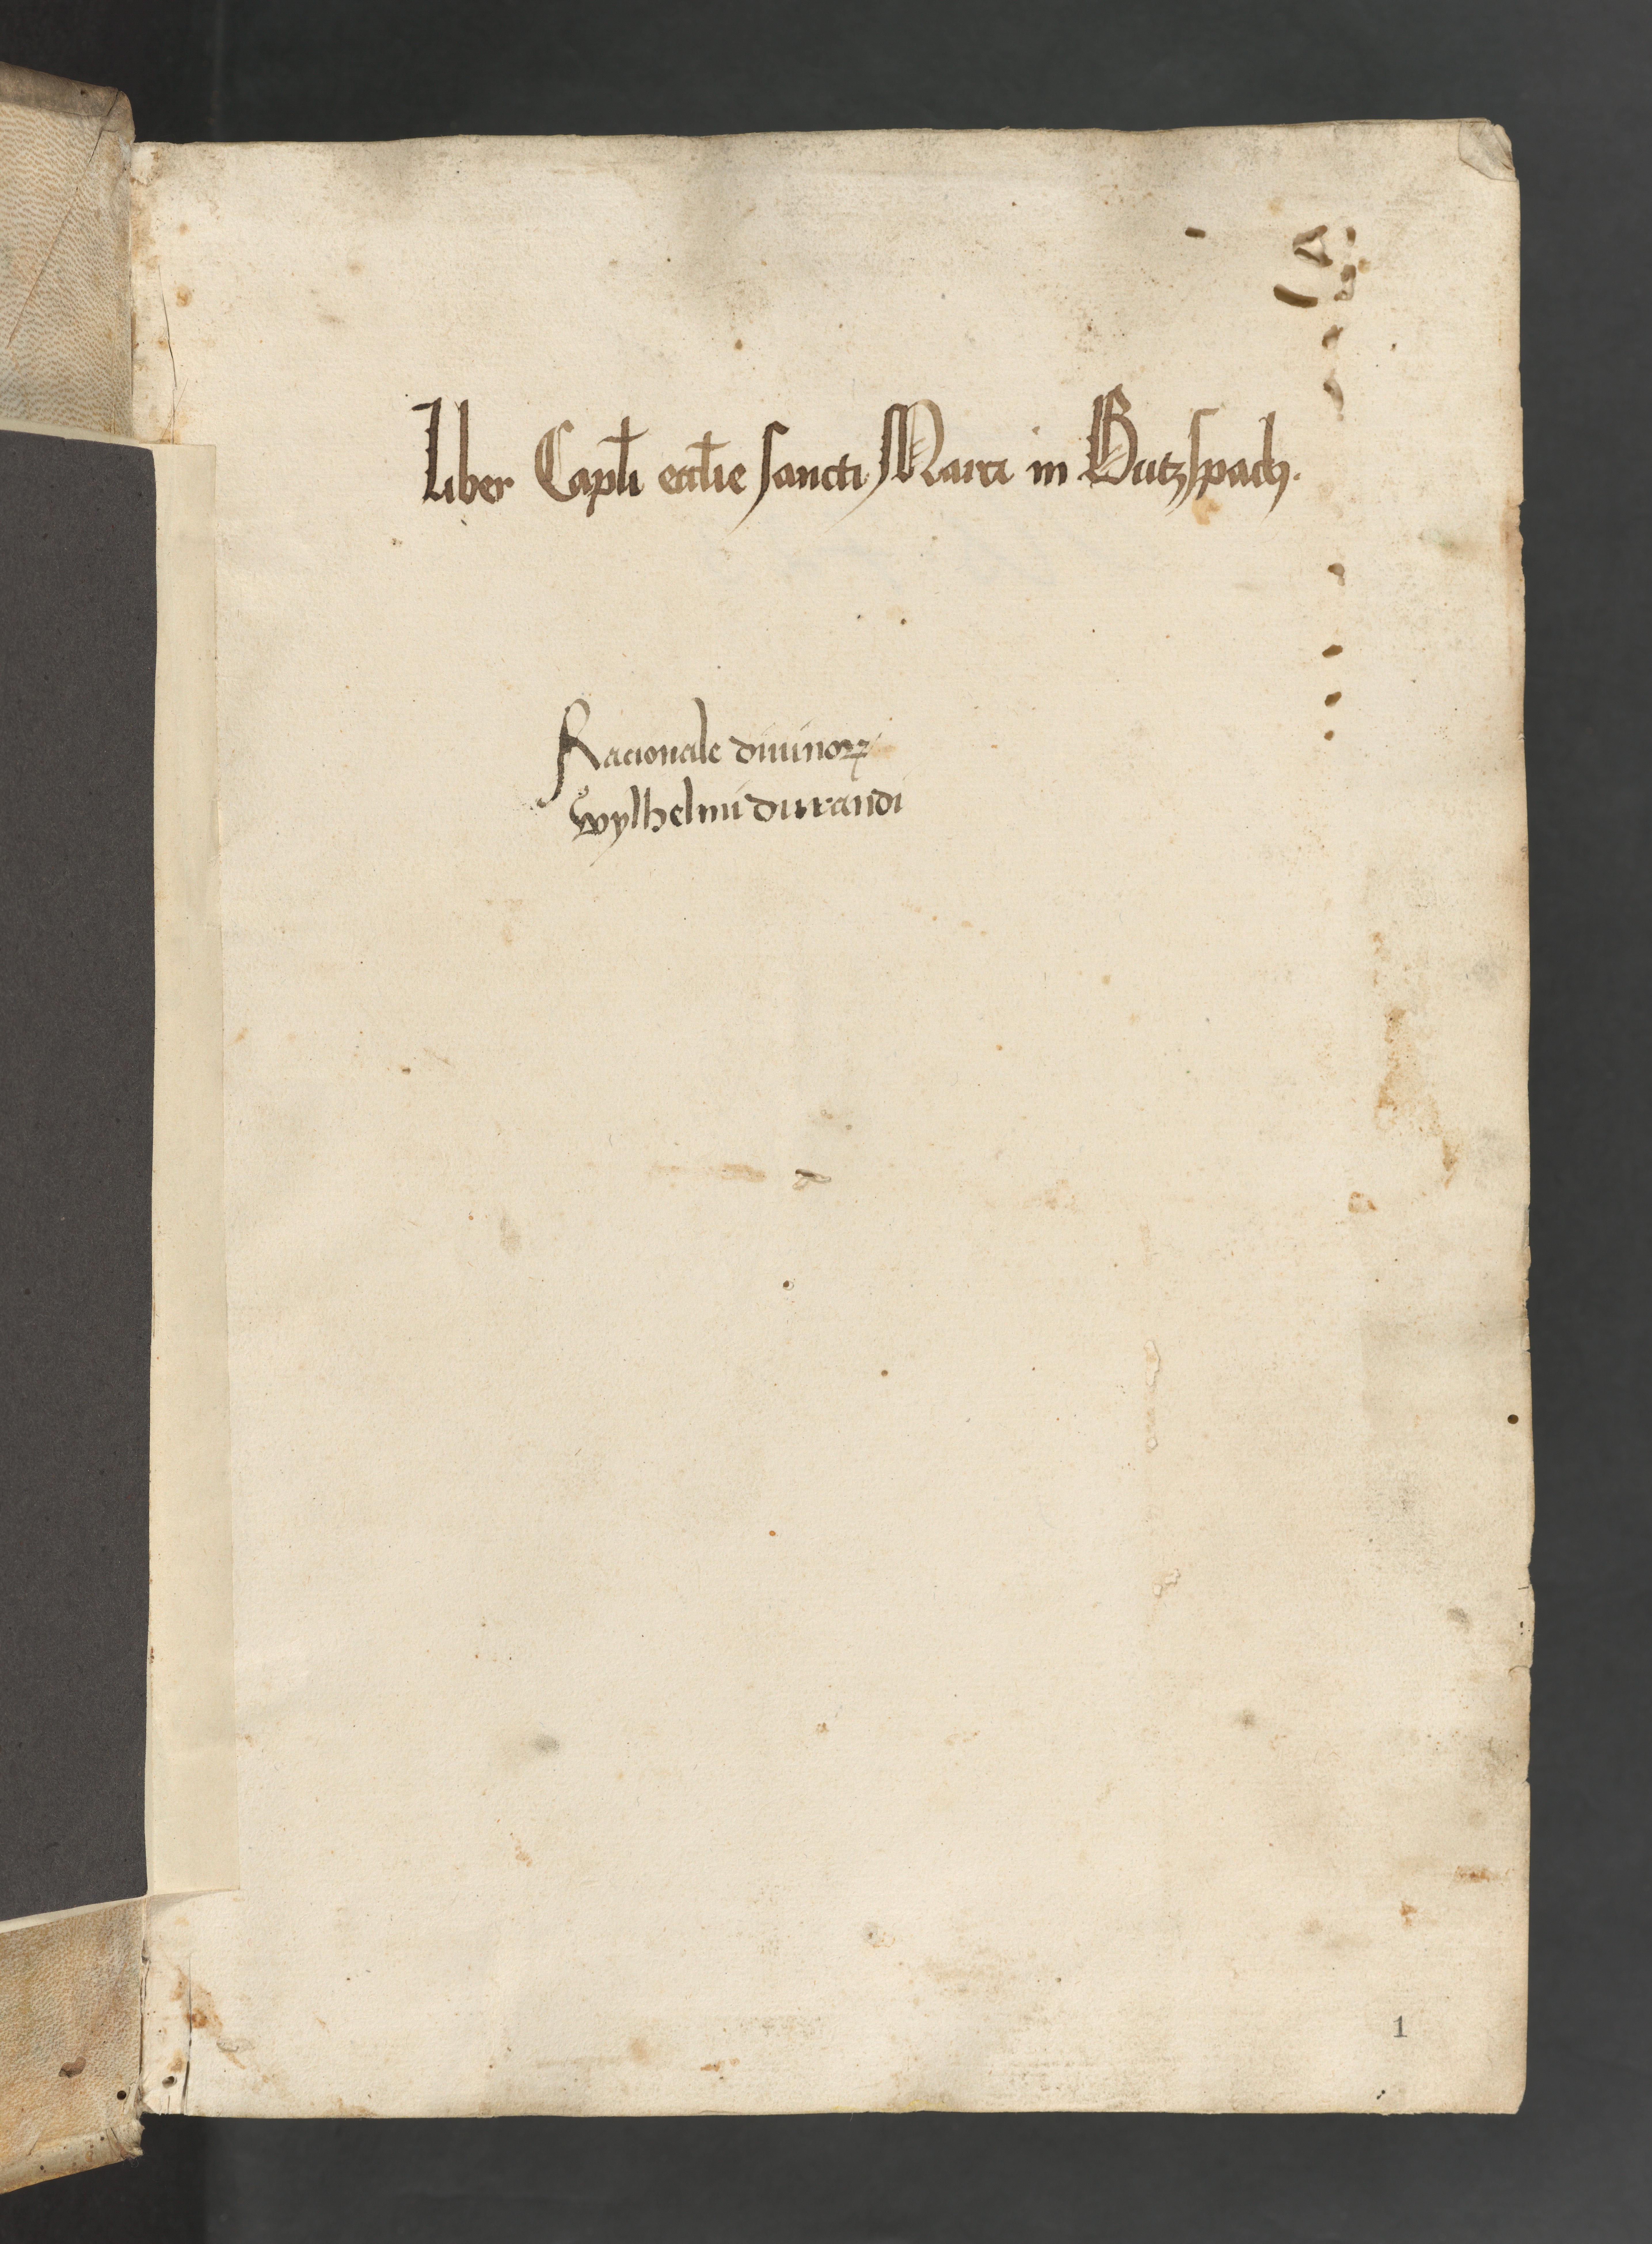 Liber Capl̄i eccl̄ie sancti Marci in Butzspach.
Racionale diuinoꝝ
wylhelmi durandi
1